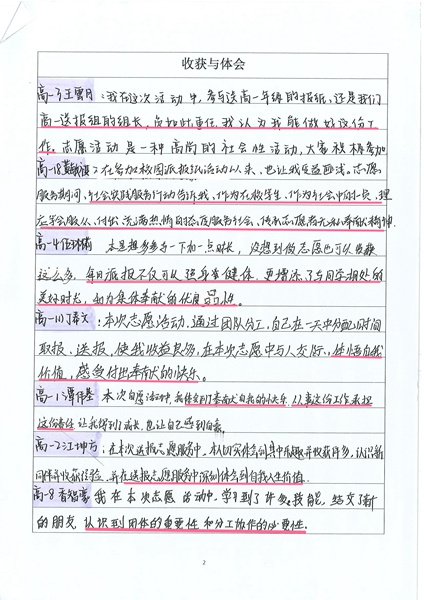 收获与体会
高一3王雲月：我在这次活动中，参与送高一年级的报纸，还是我们
高一送报组的组长，负如此重任，我认为我能做好这份工
作。志愿活动是一种高尚的社会性活动，大家积极参加
高一18：在参加校园派报纸活动以来，也让我受益匪浅。志愿
服务期间，社会实践服务行动告诉我，作为在校学生，作为社会中的一员，理
应学会服从、付出，充满热情的态度服务社会，传承志愿者无私奉献精神。
高一4：本是想多参与一下加一点时长，没想到做志愿也可以收获
这么多，每日派报不仅可以强身健体，更增添了与同学相处的
美好时光，和为集体奉献的优良品性。
高一10丁寿文：本次志愿活动，通过团队分工，自己在一天中分配好时间
取报、送报，使我收益良多，在本次志愿中与人交际，体悟自我
价值，感受付出奉献的快乐。
高一1谭伟基 本次自愿活动中，我体会到了奉献自我的快乐，从事这份工作承担
这份责任让我得到了成长，也让自己感到自豪。
高一2江坤方：在本次送报志愿服务中，本人切实体会到其中乐趣并收获许多，认识新
同伴并收获经验，并在送报志愿服务中深刻体会到自我人生价值。
高一8 我在本次志愿活动中，学习到了许多技能，结交了新
的朋友，认识到团体的重要性和分工协作的必要性。
2